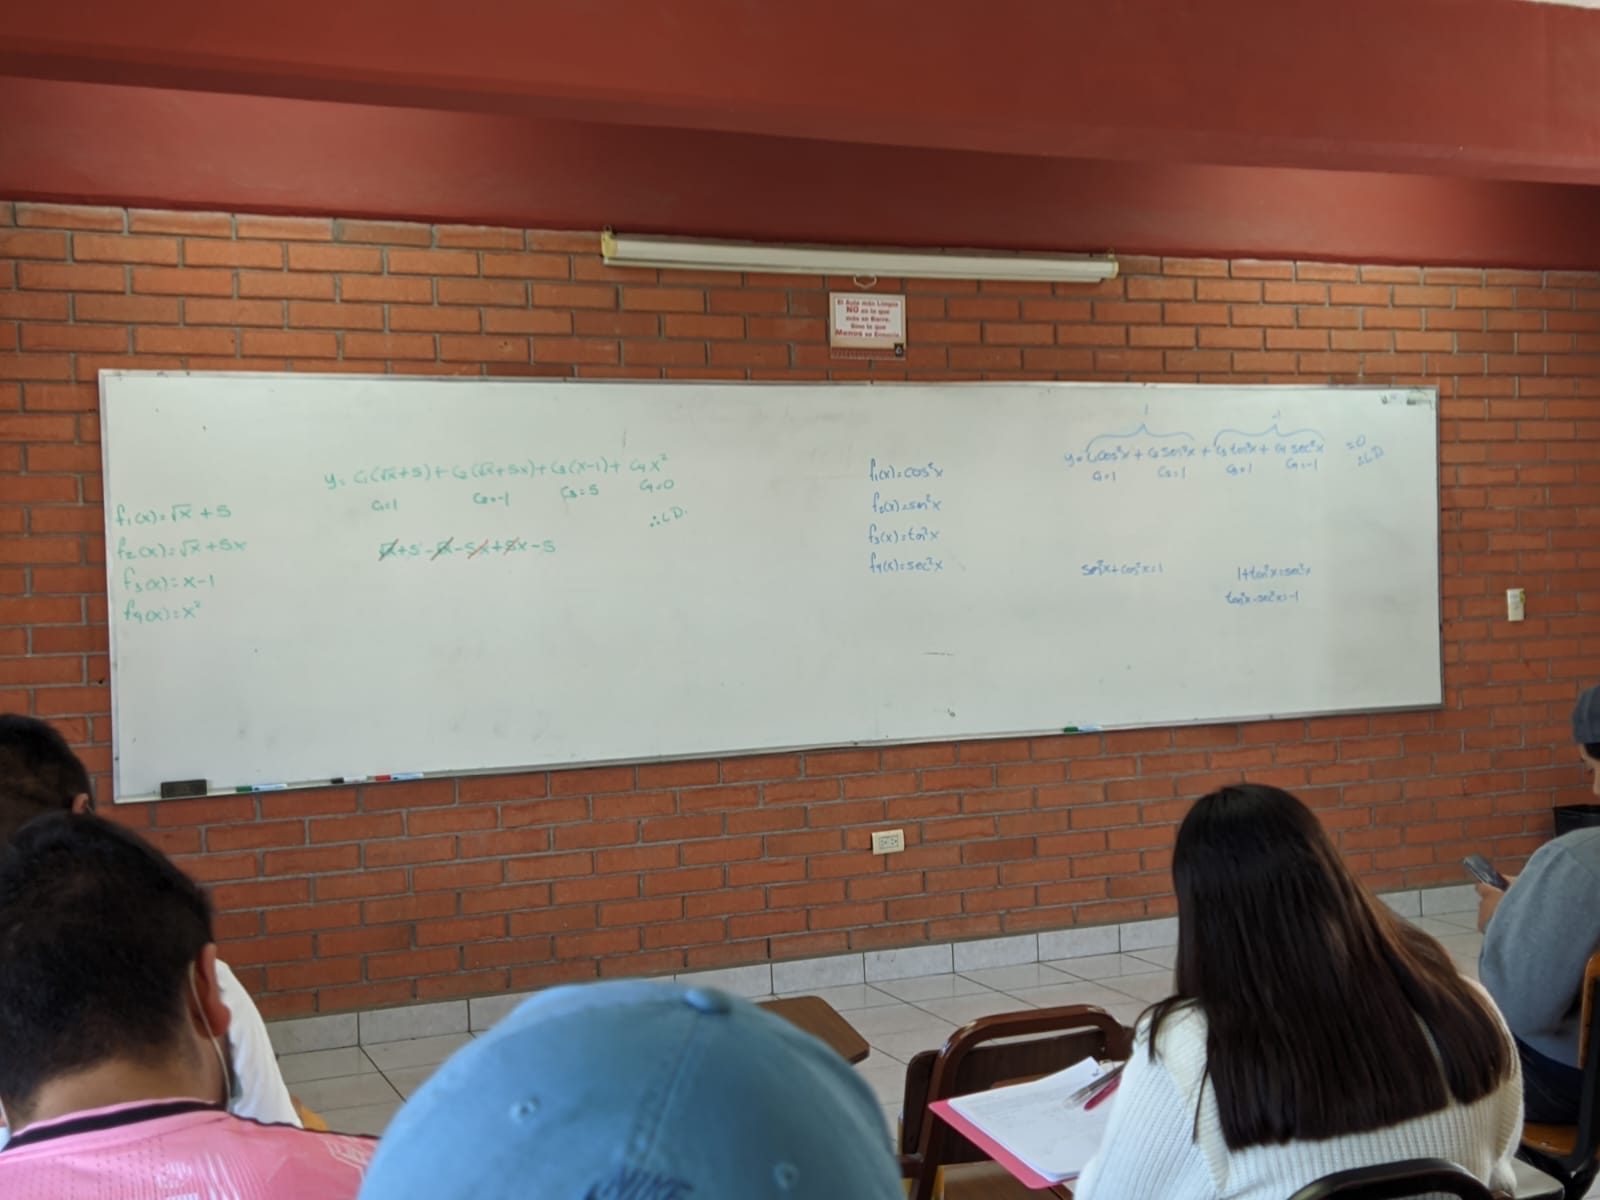 El Aula más Limpia
NO es la que
más se Barre,
Sino la que
Menos se Ensucia.
f₁(x)=√x +5
f₂(x)=√x+5x
f₃(x)=x-1
f₄(x)=x²
y= C₁(√x+5)+C₂(√x+5x)+C₃(x-1)+ C₄x²
C₁=1 C₂=-1 C₃=5 C₄=0
∴ LD.
√x+5-√x-5x+5x-5
f₁(x)=cos²x
f₂(x)=sen²x
f₃(x)=tan²x
f₄(x)=sec²x
1 -1
y= C₁cos²x+C₂sen²x+C₃tan²x+C₄sec²x =0
C₁=1 C₂=1 C₃=1 C₄=-1 ∴LD.
sen²x+cos²x=1
1+tan²x=sec²x
tan²x-sec²x=-1
NIKE